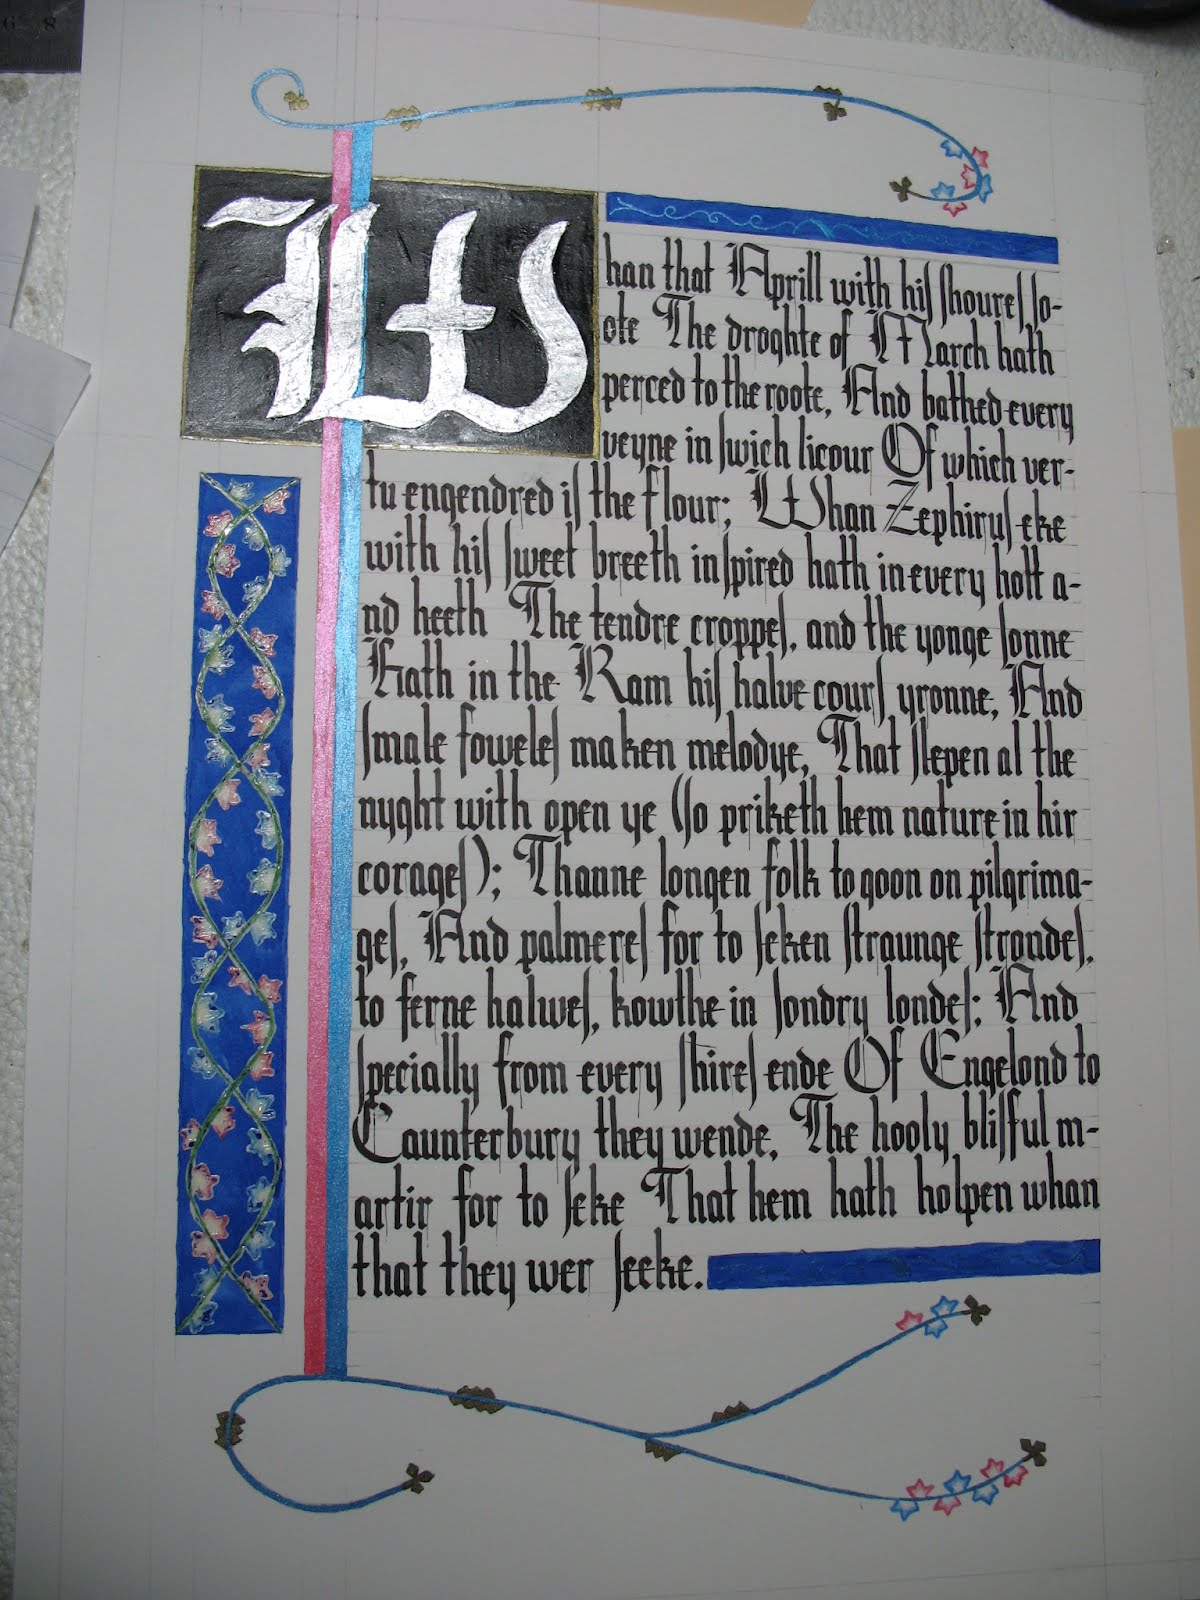 6 8
Whan that Aprill with his shoures so-
ote The droghte of March hath
perced to the roote, And bathed every
veyne in swich licour Of which ver-
tu engendred is the flour; Whan Zephirus eke
with his sweet breeth inspired hath in every holt a-
nd heeth The tendre croppes, and the yonge sonne
Hath in the Ram his halve cours yronne, And
smale foweles maken melodye, That slepen al the
nyght with open ye (so priketh hem nature in hir
corages); Thanne longen folk to goon on pilgrima-
ges, And palmeres for to seken straunge strondes,
to ferne halwes, kowthe in sondry londes; And
specially from every shires ende Of Engelond to
Caunterbury they wende, The hooly blisful m-
artir for to seke That hem hath holpen whan
that they wer seeke.